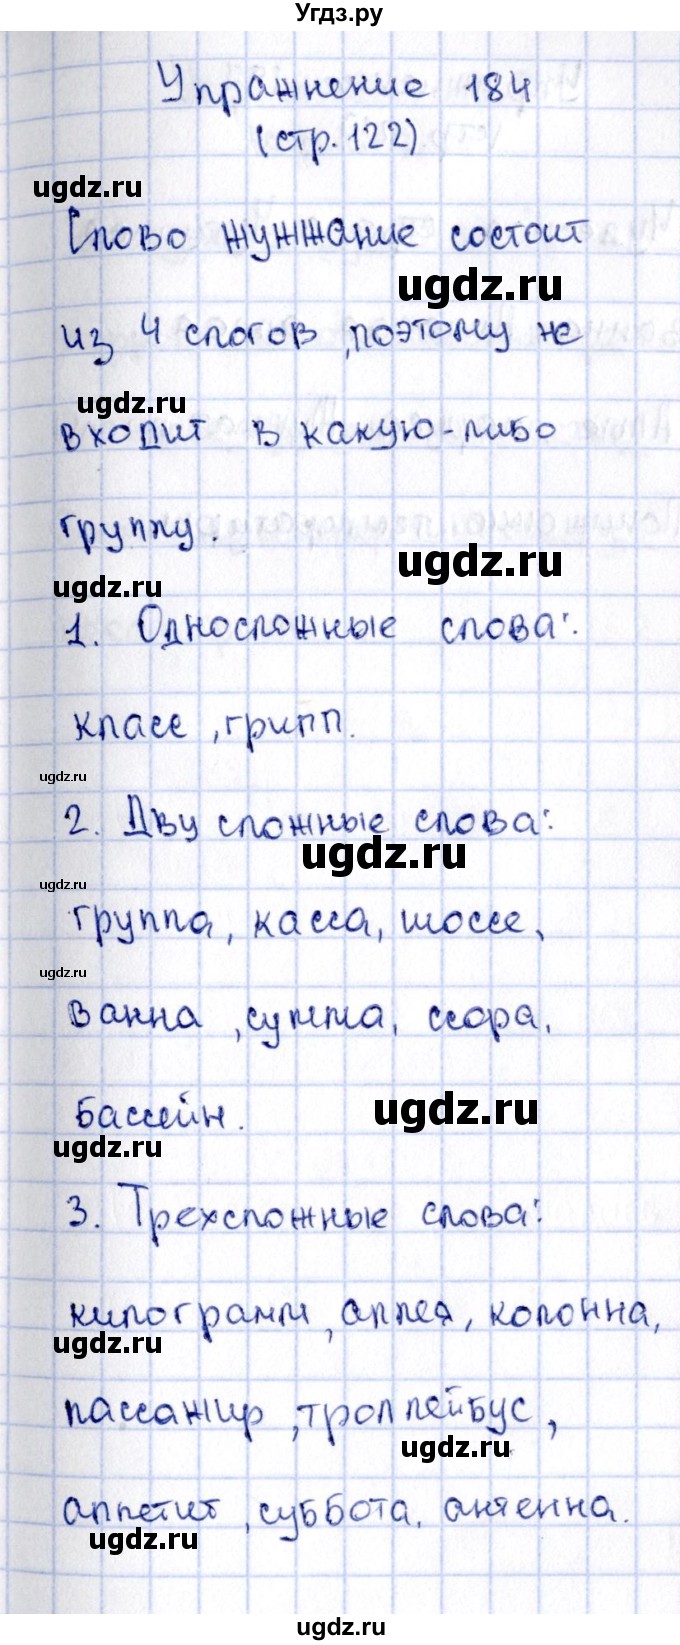 Угдз.ру
Упражнение 184
(стр. 122)
ugdz.ru
Слово жужжание состоит
ugdz.ru
из 4 слогов, поэтому не
ugdz.ru
входит в какую-либо
группу.
ugdz.ru
ugdz.ru
1. Односложные слова:
класс, грипп.
ugdz.ru
2. Двусложные слова:
ugdz.ru
ugdz.ru
группа, касса, шоссе,
ugdz.ru
ванна, сумма, ссора,
бассейн.
ugdz.ru
ugdz.ru
3. Трехсложные слова:
килограмм, аллея, колонна,
ugdz.ru
пассажир, троллейбус,
ugdz.ru
аппетит, суббота, антенна.
ugdz.ru
ugdz.ru